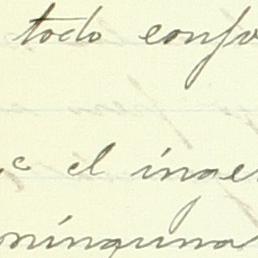 todo confo
el inge
ninguna